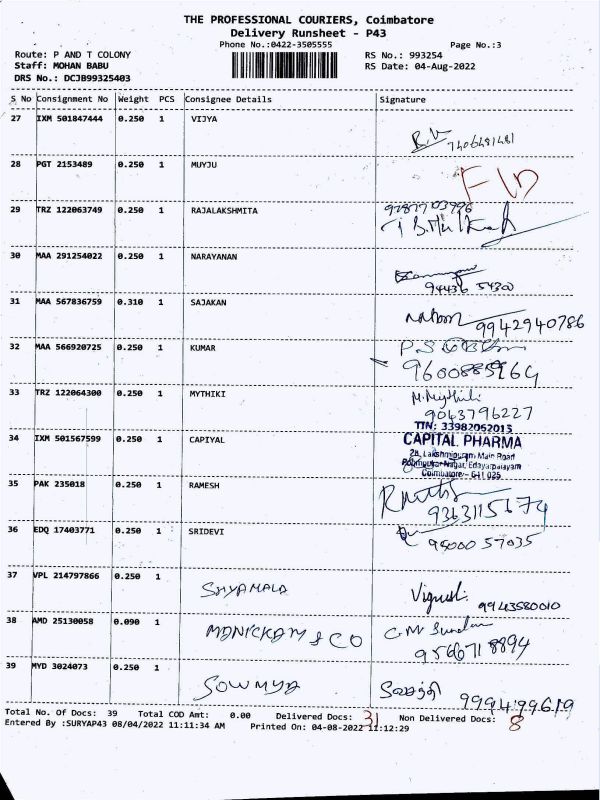 THE PROFESSIONAL COURIERS, Coimbatore
Delivery Runsheet - P43
Phone No.:0422-3505555
Page No.:3
Route: P AND T COLONY
RS No.: 993254
Staff: MOHAN BABU
RS Date: 04-Aug-2022
DRS No.: DCJB99325403
S No Consignment No Weight PCS Consignee Details Signature
27 IXM 501847444 0.250 1 VIJYA
7406481481
28 PGT 2153489 0.250 1 MUYJU
29 TRZ 122063749 0.250 1 RAJALAKSHMITA
30 MAA 291254022 0.250 1 NARAYANAN
94436 54300
31 MAA 567836759 0.310 1 SAJAKAN
9942940786
32 MAA 566920725 0.250 1 KUMAR
33 TRZ 122064300 0.250 1 MYTHIKI
M.Mythili
9043796227
34 IXM 501567599 0.250 1 CAPIYAL
TIN: 33982062013
CAPITAL PHARMA
28, Lakshmipuram Main Road
Edayarpalayam
Coimbatore - 641 025
35 PAK 235018 0.250 1 RAMESH
36 EDQ 17403771 0.250 1 SRIDEVI
95000 57035
37 VPL 214797866 0.250 1 SHYAMALA
9943580010
38 AMD 25130058 0.090 1 MANICKAM & CO
9566718894
39 MYD 3024073 0.250 1 SOWMYA
9994199619
Total No. Of Docs: 39 Total COD Amt: 0.00 Delivered Docs: 31 Non Delivered Docs: 8
Entered By :SURYAP43 08/04/2022 11:11:34 AM Printed On: 04-08-2022 11:12:29